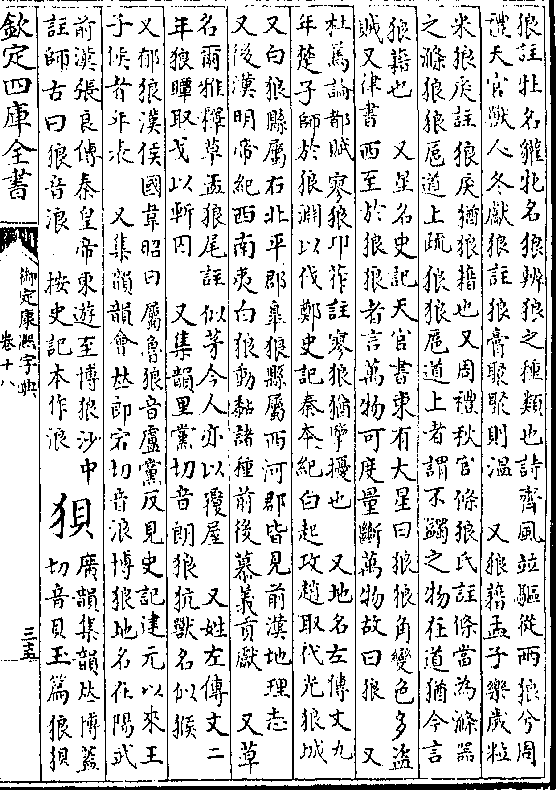 狼註牡名貛牝名狼辨狼之種類也詩齊風並驅從兩狼兮周
禮天官獸人冬獻狼註狼膏聚聚則溫　又狼藉孟子樂歲粒
米狼戾註狼戾猶狼藉也又周禮秋官條狼氏註條當為滌器
之滌狼狼扈道上疏狼狼扈道上者謂不蠲之物在道猶今言
狼藉也　又星名史記天官書東有大星曰狼狼角變色多盜
賊又律書西至於狼狼者言萬物可度量斷萬物故曰狼　又
杜篤論都賦寥狼卭莋註寥狼猶擾也　又地名左傳文九
年楚子師於狼淵以伐鄭史記秦本紀白起攻趙取代光狼城
又白狼縣屬右北平郡臯狼縣屬西河郡皆見前漢地理志
又後漢明帝紀西南夷白狼動黏諸種前後慕義貢獻　又草
名爾雅釋草孟狼尾註似茅今人亦以覆屋　又姓左傳文二
年狼瞫取戈以斬囚　又集韻里黨切音朗狼犺獸名似猴
又郁狼漢侯國韋昭曰屬魯狼音盧黨反見史記建元以來王
子侯者年表　又集韻韻會𠀤郎宕切音浪博狼地名在陽武
前漢張良傳秦皇帝東遊至博狼沙中
註師古曰狼音浪　按史記本作浪
狽
廣韻集韻𠀤博蓋
切音貝玉篇狼狽
欽定四庫全書
御定康熙字典
卷十八
三五